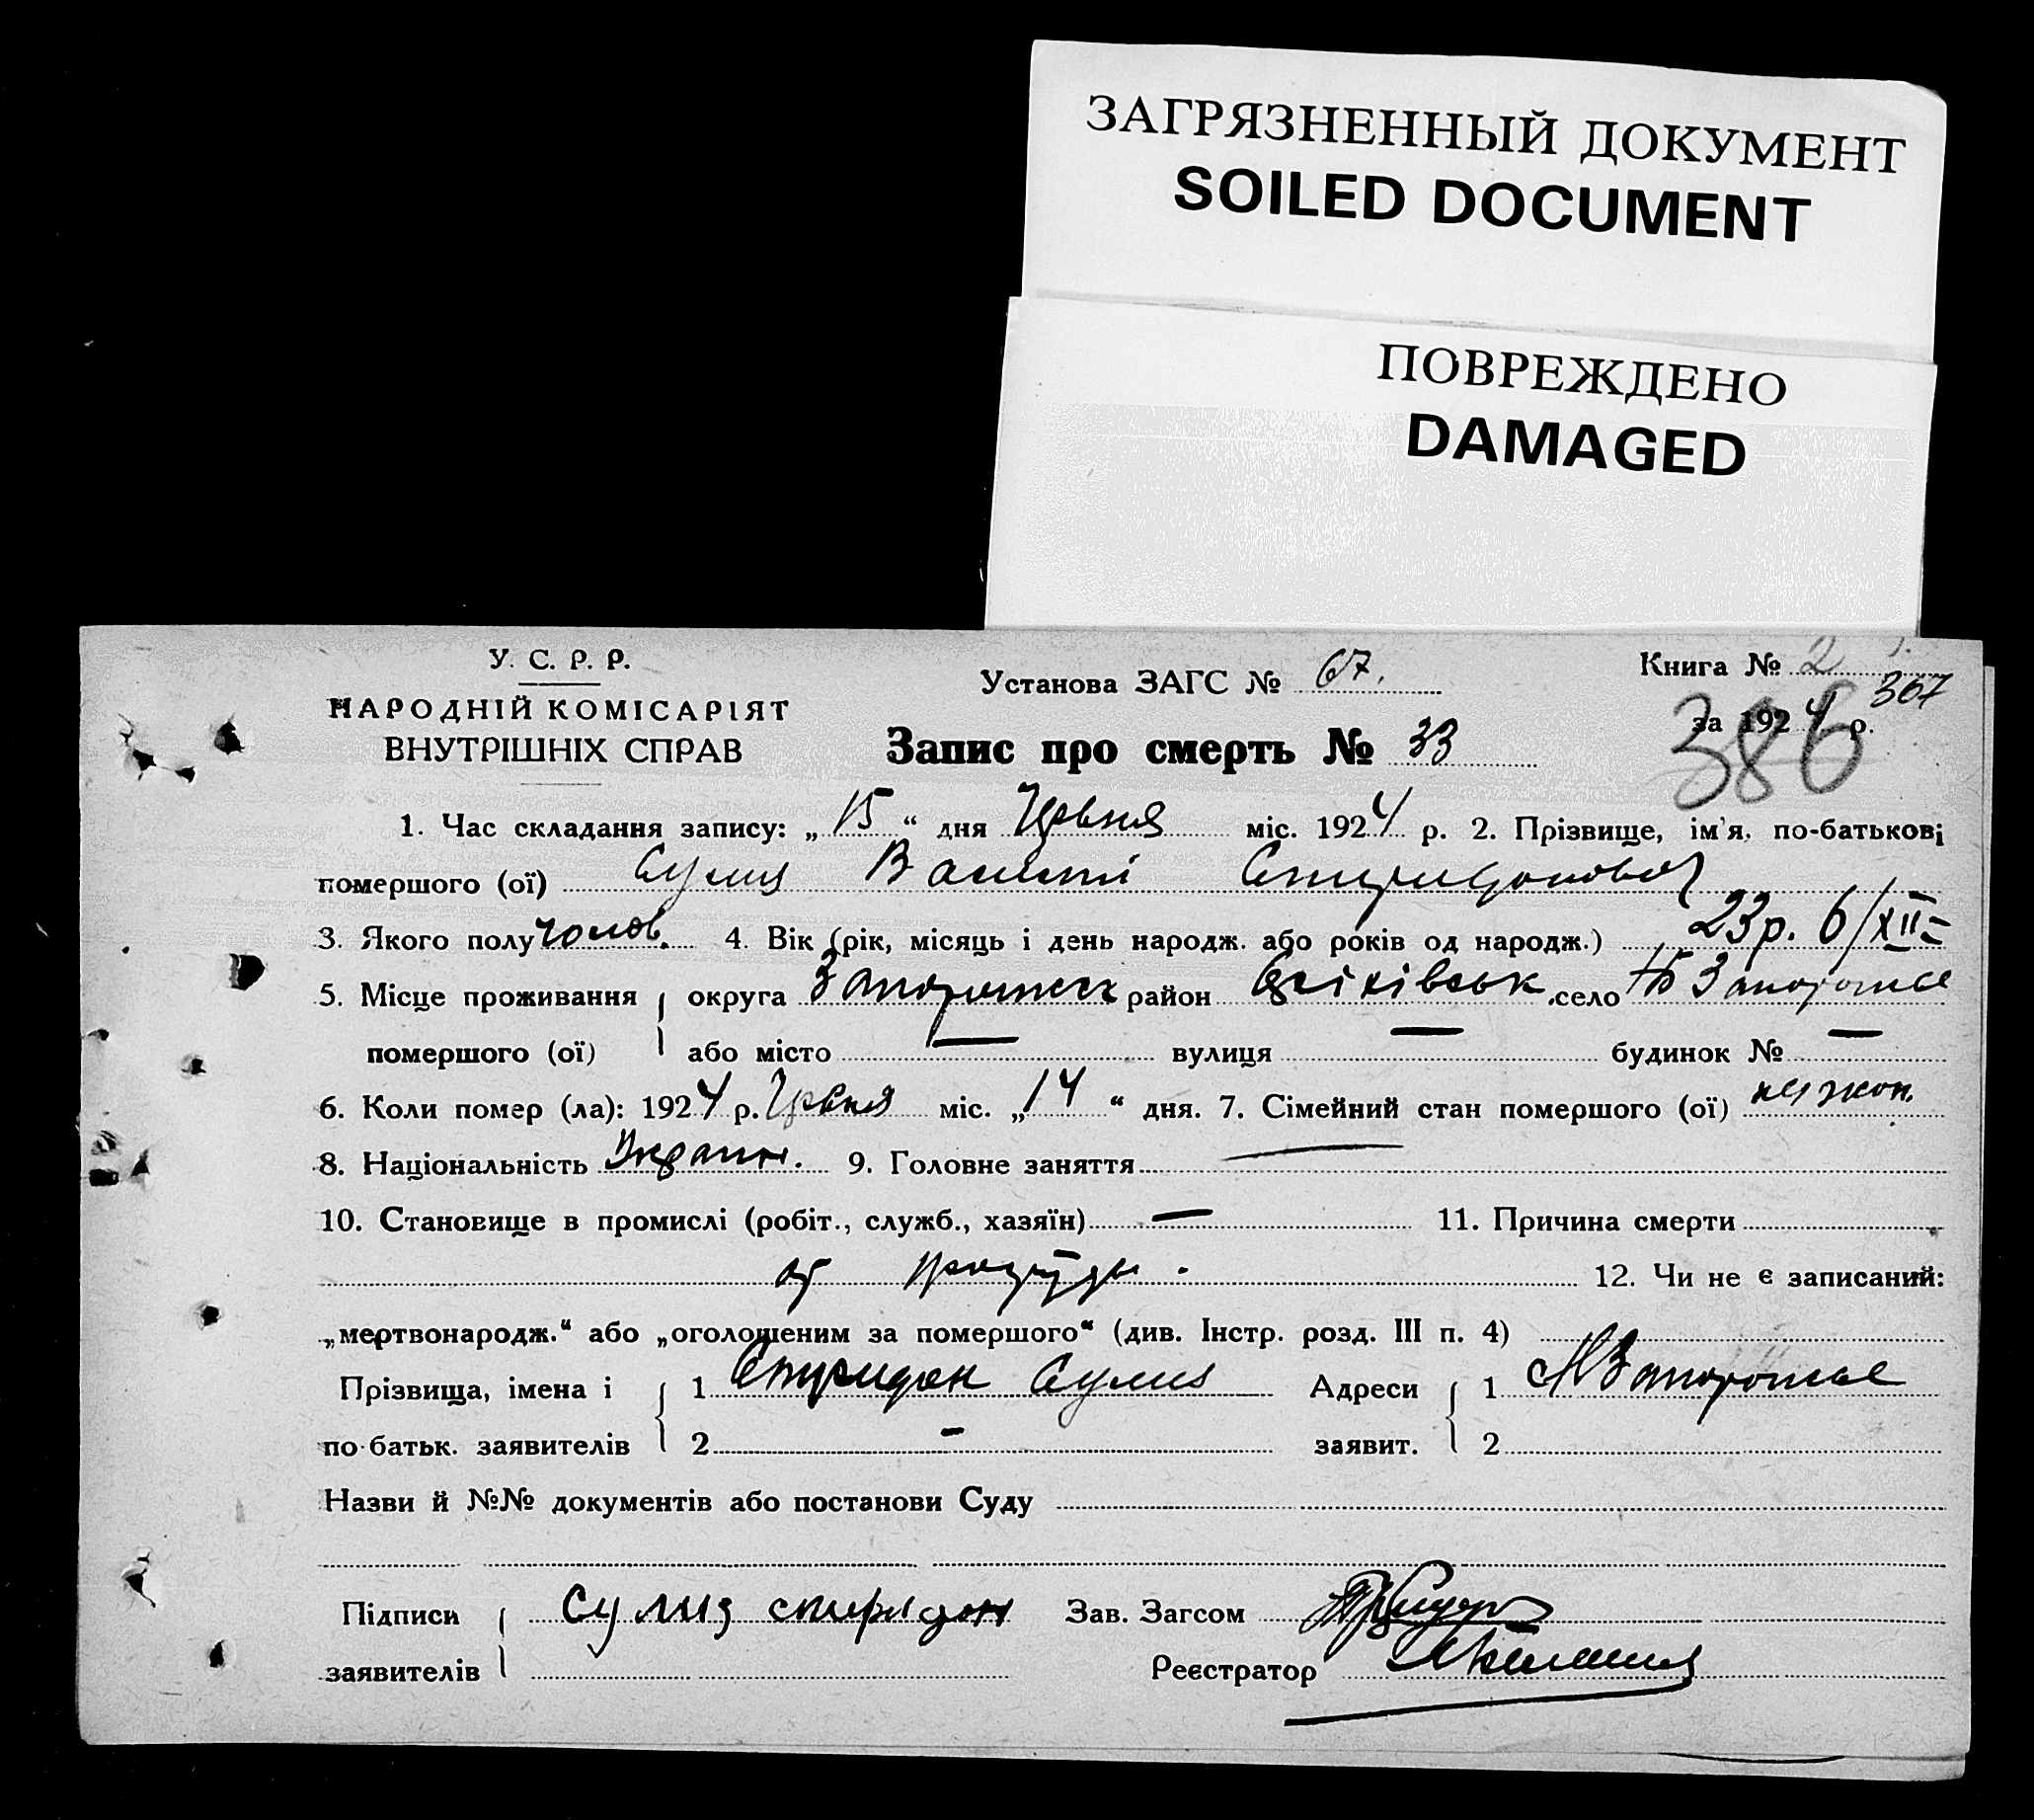 ЗАГРЯЗНЕННЫЙ ДОКУМЕНТ
SOILED DOCUMENT
ПОВРЕЖДЕНО
DAMAGED
У. С. Р. Р.
НАРОДНІЙ КОМІСАРІЯТ
ВНУТРІШНІХ СПРАВ
Установа ЗАГС № 67.
Книга № 2
367
за 1924 р.
386
Запис про смерть № 33
1. Час складання запису: „15“ дня Червня міс. 1924 р. 2. Прізвище, ім'я, по-батькові
помершого (ої) Сулиз Василій Спиридонович
3. Якого полу чолов. 4. Вік (рік, місяць і день народж. або років од народж.) 23 р. 6/XII
5. Місце проживання округа Запорожск район село Запорожье
помершого (ої) або місто — вулиця — будинок № —
6. Коли помер (ла): 1924 р. Червня міс. „14“ дня. 7. Сімейний стан помершого (ої)
8. Національність Украин. 9. Головне заняття —
10. Становище в промислі (робіт., служб., хазяїн) — 11. Причина смерти
от простуды. 12. Чи не є записаний:
„мертвонародж.“ або „оголошеним за помершого“ (див. Інстр. розд. III п. 4)
Прізвища, імена і 1 Спиридон Сулиз Адреси 1 Запорожье
по батьк. заявителів 2 - заявит. 2
Назви й №№ документів або постанови Суду
Підписи Сулиз спиридон Зав. Загсом
заявителів Реєстратор